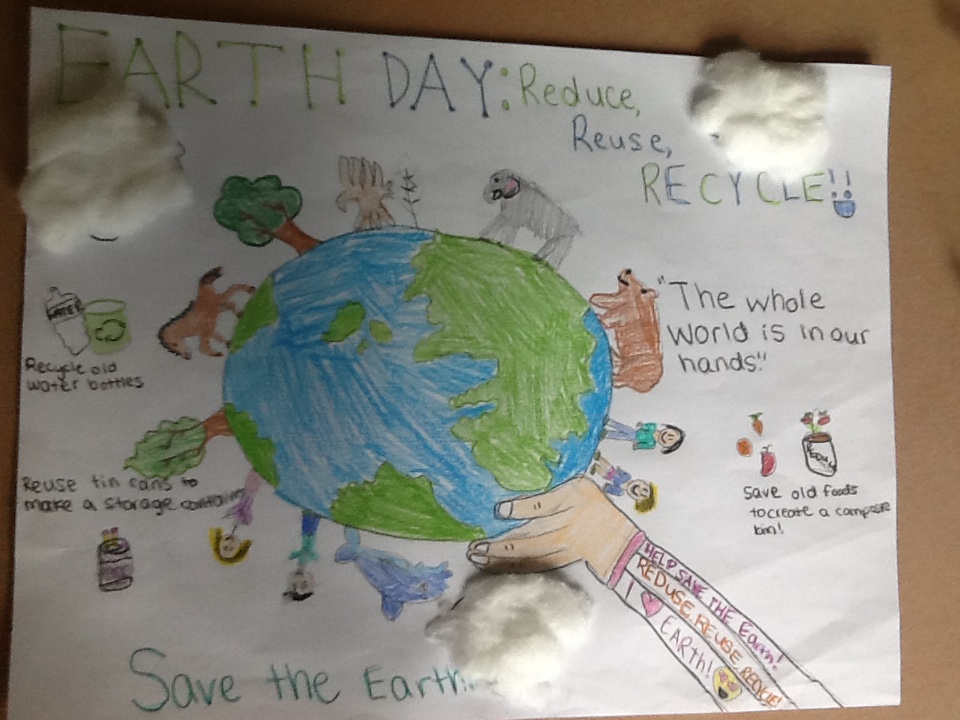 EARTH DAY: Reduce,
Reuse,
RECYCLE!!
WATER
Recycle old
water bottles
"The whole
world is in our
hands"
Reuse tin cans to
make a storage container
save old foods
to create a compose
bin!
HELP SAVE THE Earth!
REDUSE, REUSE RECYCLE!
I ♥ EARTH!
Save the Earth.